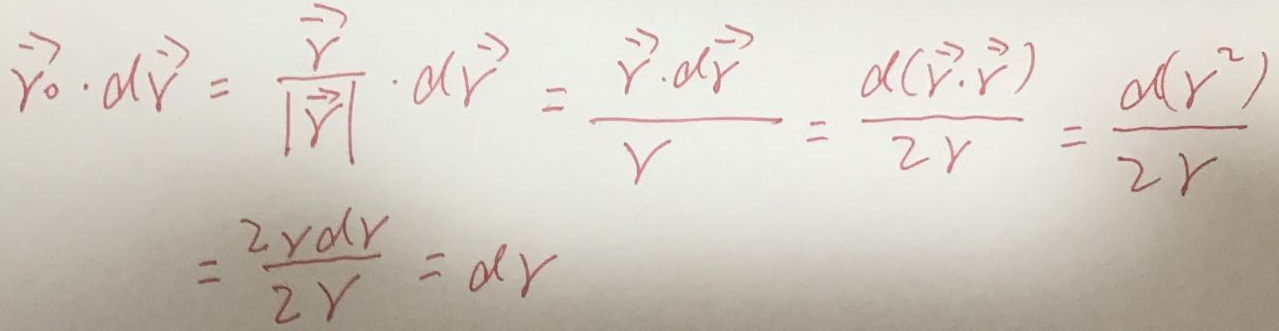 $\vec{r}_0 \cdot d\vec{r} = \frac{\vec{r}}{|\vec{r}|} \cdot d\vec{r} = \frac{\vec{r} \cdot d\vec{r}}{r} = \frac{d(\vec{r} \cdot \vec{r})}{2r} = \frac{d(r^2)}{2r}$
$= \frac{2rdr}{2r} = dr$